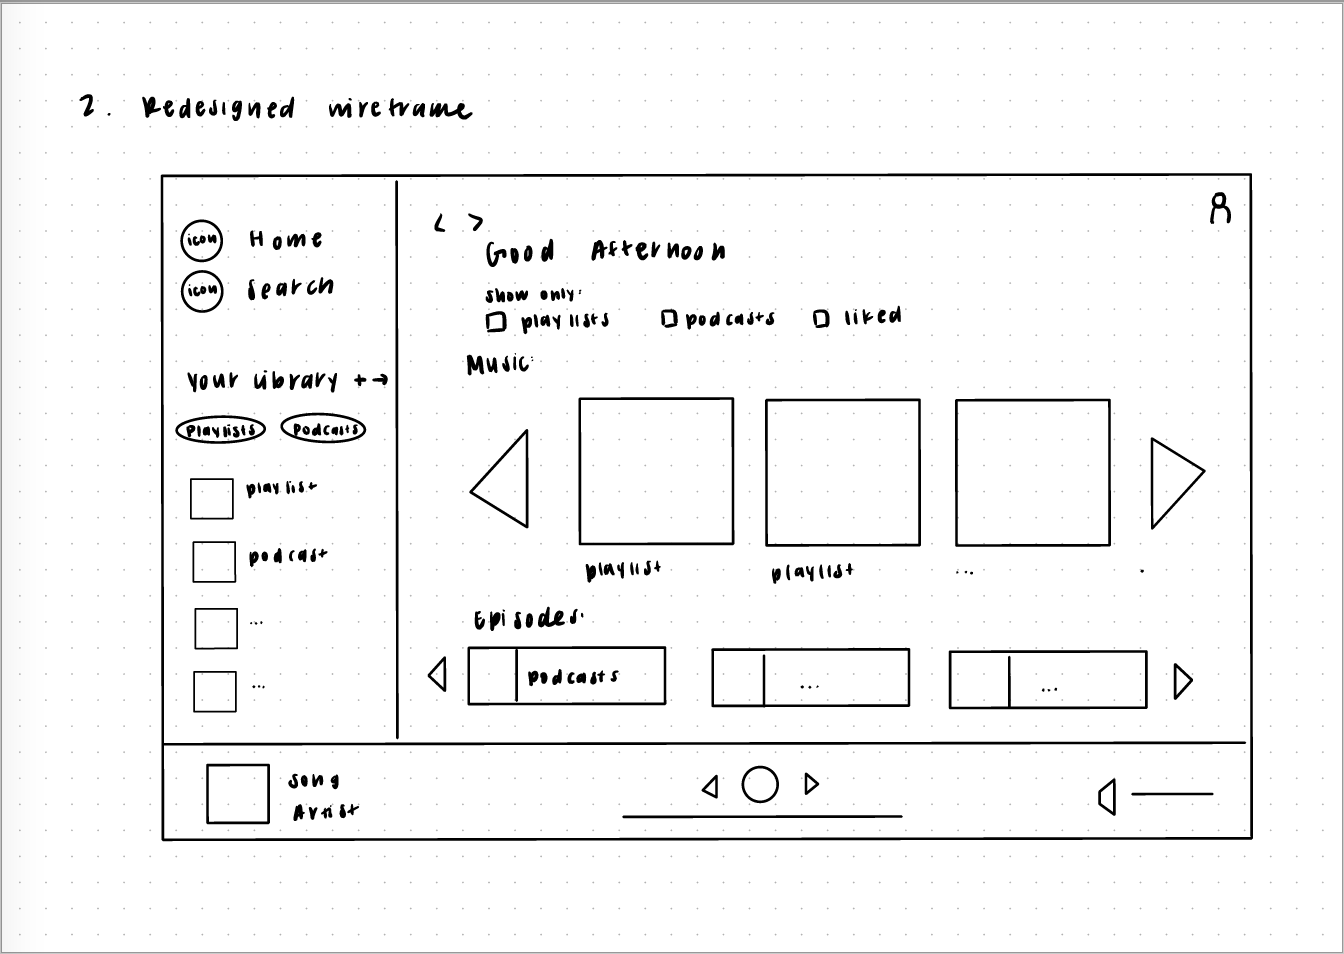 2. Redesigned wireframe
icon Home
icon Search
Your Library + →
Playlists Podcasts
playlist
podcast
...
...
< >
Good Afternoon
Show only:
playlists podcasts liked
Music:
playlist playlist ... .
Episodes:
podcasts ... ...
Song
Artist